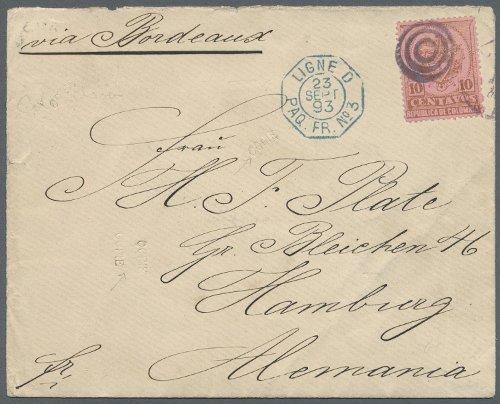 via Bordeaux
LIGNE D
23
SEPT
93
PAQ. FR. Nº 3
10 10
CENTAVOS
REPUBLICA DE COLOMBIA
Frau
H. F. Plate
Gr. Bleichen 46
Hamburg
fr. Alemania